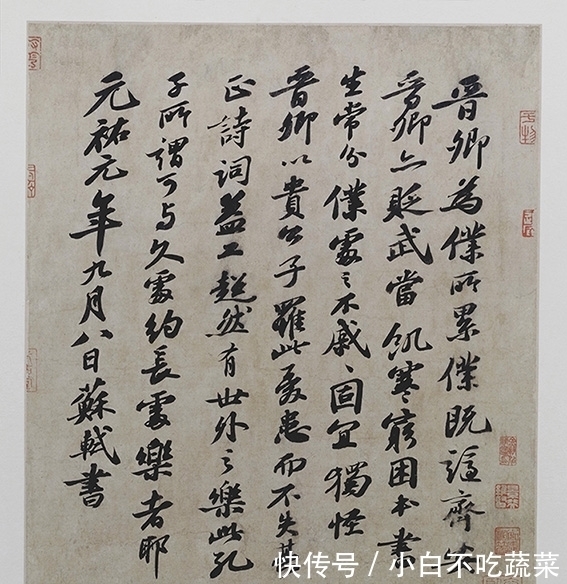 晉卿為僕所累僕既謫齊安
晉卿亦貶武當飢寒窮困本書
生常分僕處之不戚〻固宜獨怪
晉卿以貴公子罹此憂患而不失其
正詩詞益工超然有世外之樂此孔
子所謂可与久處約長處樂者耶
元祐元年九月八日蘇軾書
快传号 / 小白不吃蔬菜